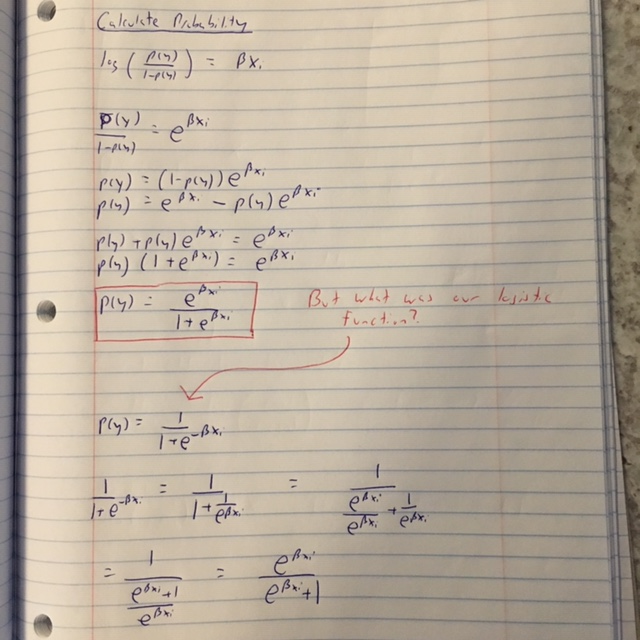 Calculate Probability
log ( p(y) / 1-p(y) ) = βxᵢ
p(y) / 1-p(y) = e^βxᵢ
p(y) = (1-p(y)) e^βxᵢ
p(y) = e^βxᵢ - p(y) e^βxᵢ
p(y) + p(y) e^βxᵢ = e^βxᵢ
p(y) (1 + e^βxᵢ) = e^βxᵢ
p(y) = e^βxᵢ / 1 + e^βxᵢ
But what was our logistic
function?
p(y) = 1 / 1 + e^-βxᵢ
1 / 1 + e^-βxᵢ = 1 / 1 + 1/e^βxᵢ = 1 / e^βxᵢ/e^βxᵢ + 1/e^βxᵢ
= 1 / e^βxᵢ+1/e^βxᵢ = e^βxᵢ / e^βxᵢ+1